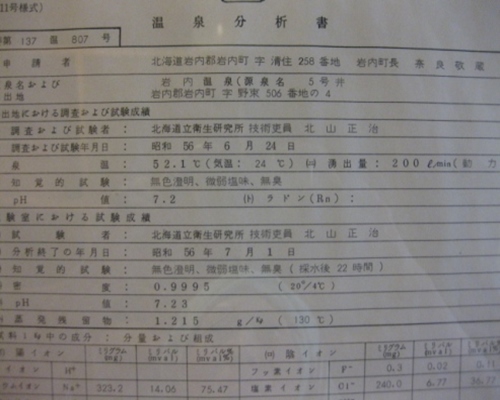 11号様式)
温泉分析書
第 137 温 807 号
申請者 北海道岩内郡岩内町字清住258番地 岩内町長
泉名および 岩内温泉(源泉名 5号井
出地 岩内郡岩内町字野束506番地の4
出地における調査および試験成績
調査および試験者 : 北海道立衛生研究所 技術吏員 北山正治
調査および試験年月日 : 昭和 56年 6月 24日
泉温 : 52.1℃(気温: 24℃) ㈣ 湧出量: 200ℓ/min(動力
知覚的試験 : 無色澄明、微弱塩味、無臭
pH値 : 7.2 ㈬ ラドン(Rn):
験室における試験成績
試験者 : 北海道立衛生研究所 技術吏員 北山正治
分析終了の年月日 : 昭和 56年 7月 1日
知覚的試験 : 無色澄明、微弱塩味、無臭(採水後22時間)
密度 : 0.9995 (20°/4℃)
pH値 : 7.23
蒸発残留物 : 1.215 g/kg (130℃)
試料1kg中の成分 : 分量および組成
陽イオン ミリグラム(mg) ミリバル(mval) ミリバル%(mval%) 陰イオン ミリグラム(mg) ミリバル(mval)
イオン H⁺ フッ素イオン F⁻ 0.3 0.02 0.11
ウムイオン Na⁺ 323.2 14.06 75.47 塩素イオン Cl⁻ 240.0 6.77 36.77